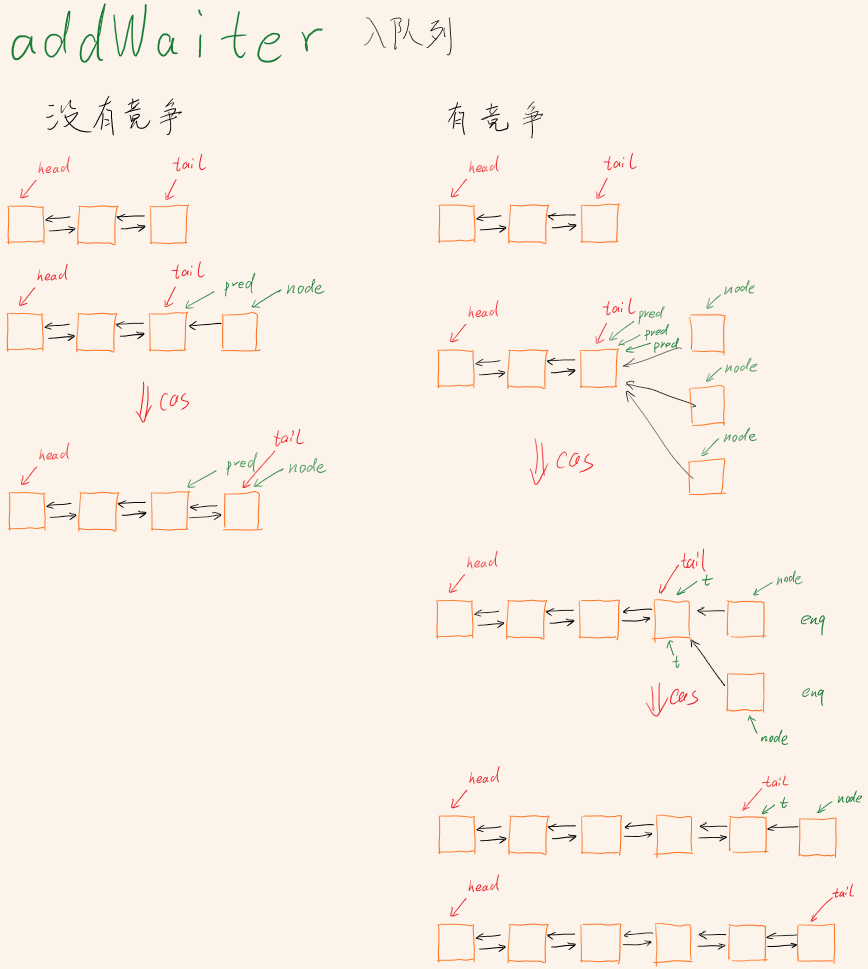 addWaiter 入队列
没有竞争
head
tail
head
tail
pred
node
cas
tail
head
pred
node
有竞争
head
tail
node
head
tail
pred
pred
pred
node
node
cas
head
tail
t
node
enq
t
cas
enq
node
head
tail
t
node
head
tail